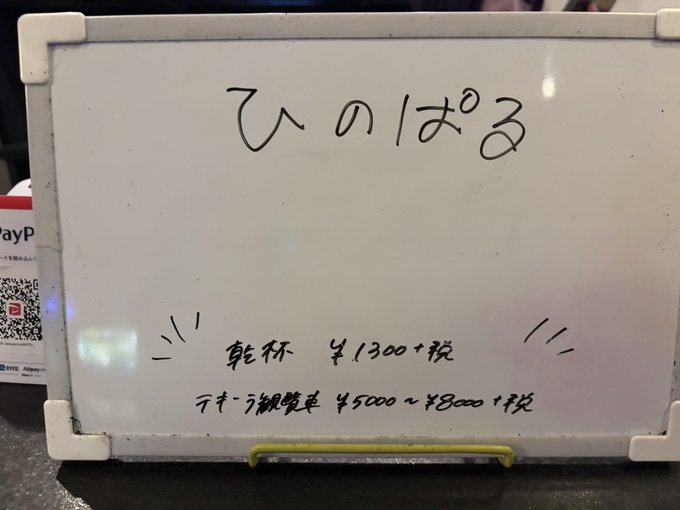 ひのぱる
乾杯 ¥1300+税
テキーラ観覧車 ¥5000~¥8000+税
PayP
ードを読み込んで
Alipay